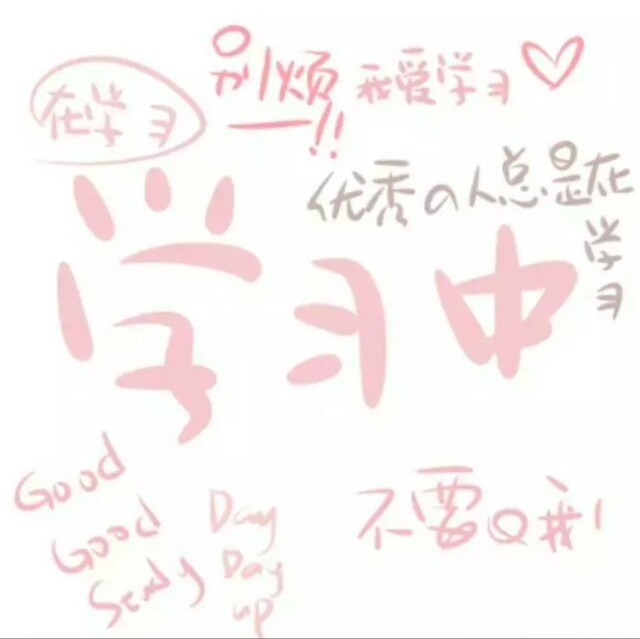 别烦!!
在学习
我爱学习
优秀の人总是在
学习
学习中
Good
Good
Study
Day
Day
up
不要Q我!